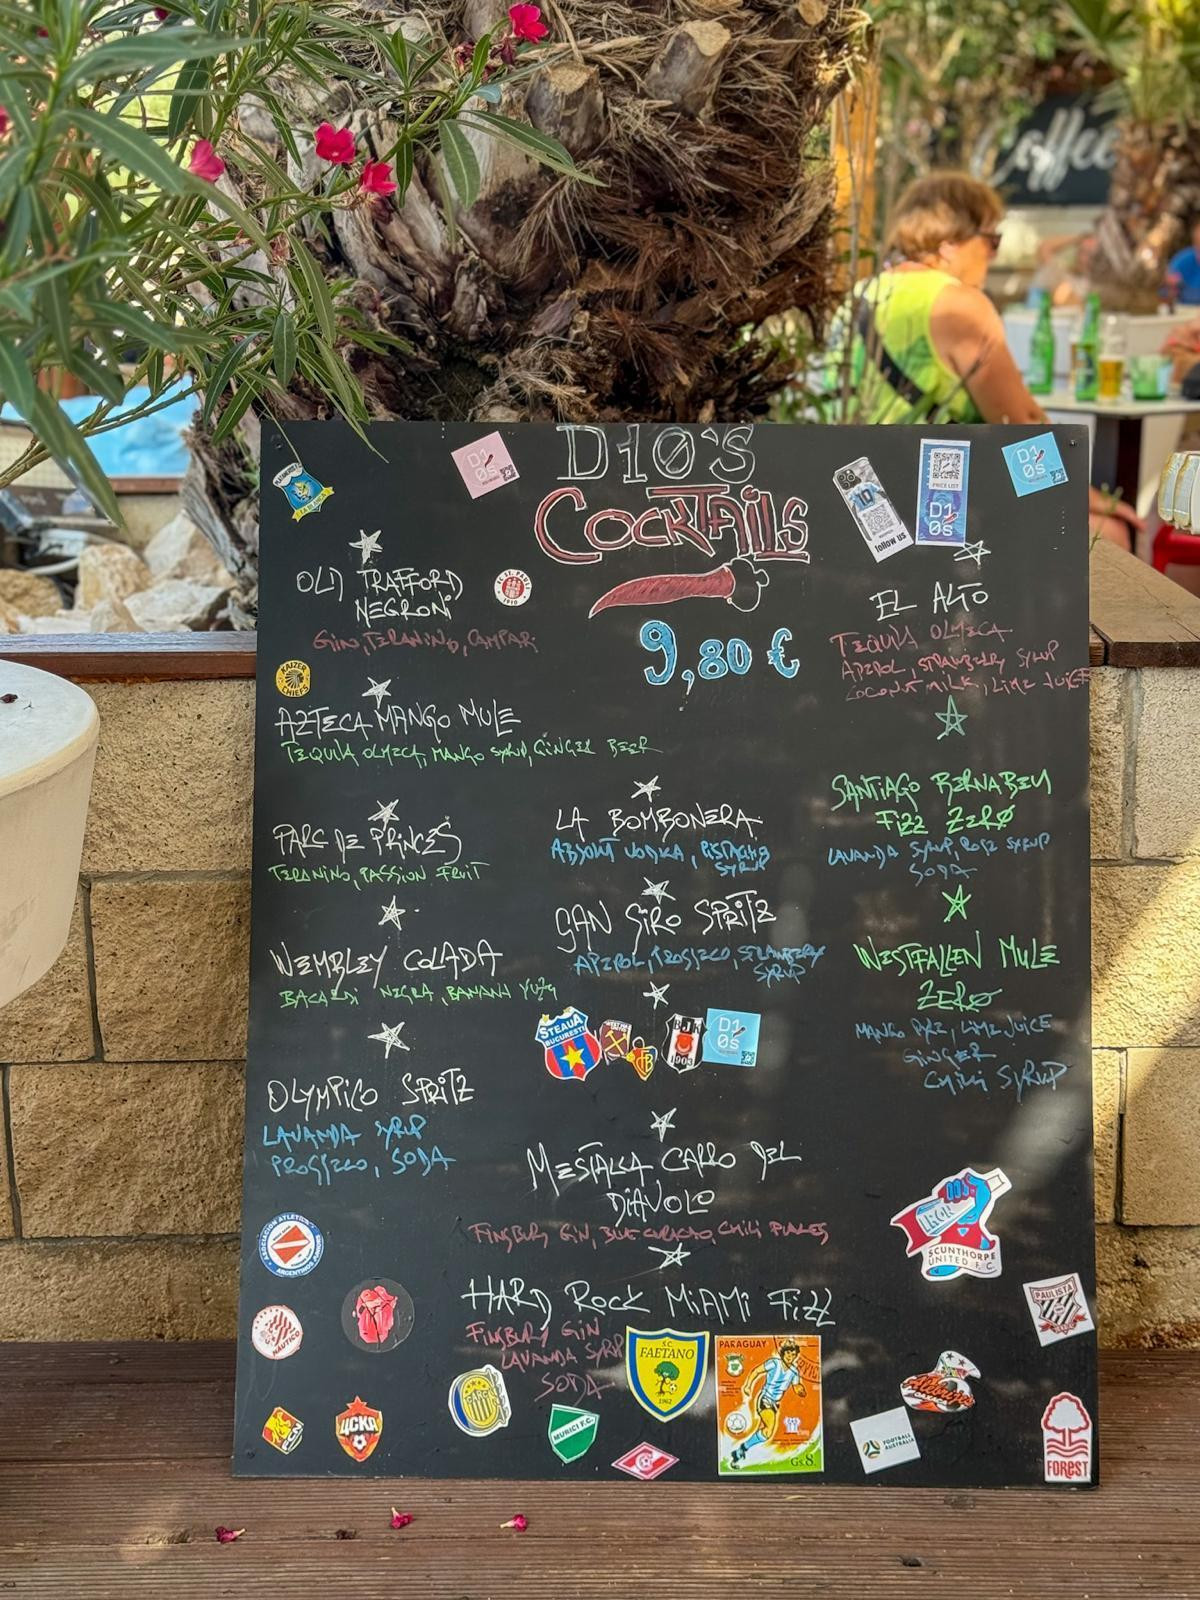 Coffee
D10'S
COCKTAILS
9,80 €
OLD TRAFFORD
NEGRONI
GIN, TERANINO, CAMPARI
AZTECA MANGO MULE
TEQUILA OLMECA, MANGO SYRUP, GINGER BEER
PARC DE PRINCES
TERANINO, PASSION FRUIT
WEMBLEY COLADA
BACARDI NEGRA, BANANA YUZU
OLYMPICO SPRITZ
LAVANDA SYRUP
PROSECCO, SODA
LA BOMBONERA
ABSOLUT VODKA, PISTACHIO
SYRUP
SAN SIRO SPRITZ
APEROL, PROSECCO, STRAWBERRY
SYRUP
MESTALLA CARRO DEL
DIAVOLO
FINSBURY GIN, BLUE CURACAO, CHILI FLAKES
HARD ROCK MIAMI FIZZ
FINSBURY GIN
LAVANDA SYRUP
SODA
EL ALTO
TEQUILA OLMECA
APEROL, STRAWBERRY SYRUP
COCONUT MILK, LIME JUICE
SANTIAGO BERNABEU
FIZZ ZERO
LAVANDA SYRUP, ROSE SYRUP
SODA
WESTFALLEN MULE
ZERO
MANGO PIRE, LIME JUICE
GINGER
CHILI SYRUP
D10s
10
follow us
PRICE LIST
D10s
D10s
FC ST. PAULI
1910
KAIZER
CHIEFS
STEAUA
BUCURESTI
BJK
1903
D10s
ASOCIACION ATLETICA
ARGENTINOS JUNIORS
NAUTICO
ЦСКА
MURICI F.C.
S.C.
FAETANO
1962
PARAGUAY
Gs.8.
IRON
SCUNTHORPE
UNITED F.C.
PAULISTA
FOOTBALL
AUSTRALIA
FOREST